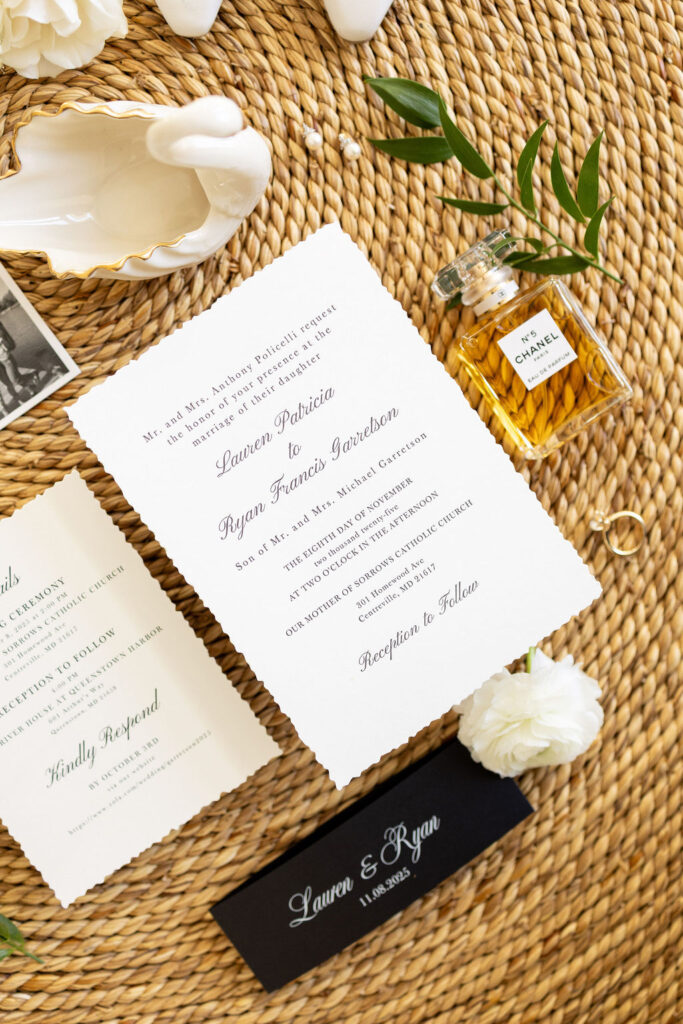 Mr. and Mrs. Anthony Policelli request
the honor of your presence at the
marriage of their daughter
Lauren Patricia
to
Ryan Francis Garretson
Son of Mr. and Mrs. Michael Garretson
THE EIGHTH DAY OF NOVEMBER
two thousand twenty-five
AT TWO O'CLOCK IN THE AFTERNOON
OUR MOTHER OF SORROWS CATHOLIC CHURCH
301 Homewood Ave
Centreville, MD 21617
Reception to Follow
N°5
CHANEL
PARIS
EAU DE PARFUM
CEREMONY
8, 2025 at 2:00 PM
SORROWS CATHOLIC CHURCH
301 Homewood Ave
Centreville, MD 21617
RECEPTION TO FOLLOW
4:00 PM
RIVER HOUSE AT QUEENSTOWN HARBOR
Queenstown, MD 21658
Kindly Respond
BY OCTOBER 3RD
via our website
Lauren & Ryan
11.08.2025